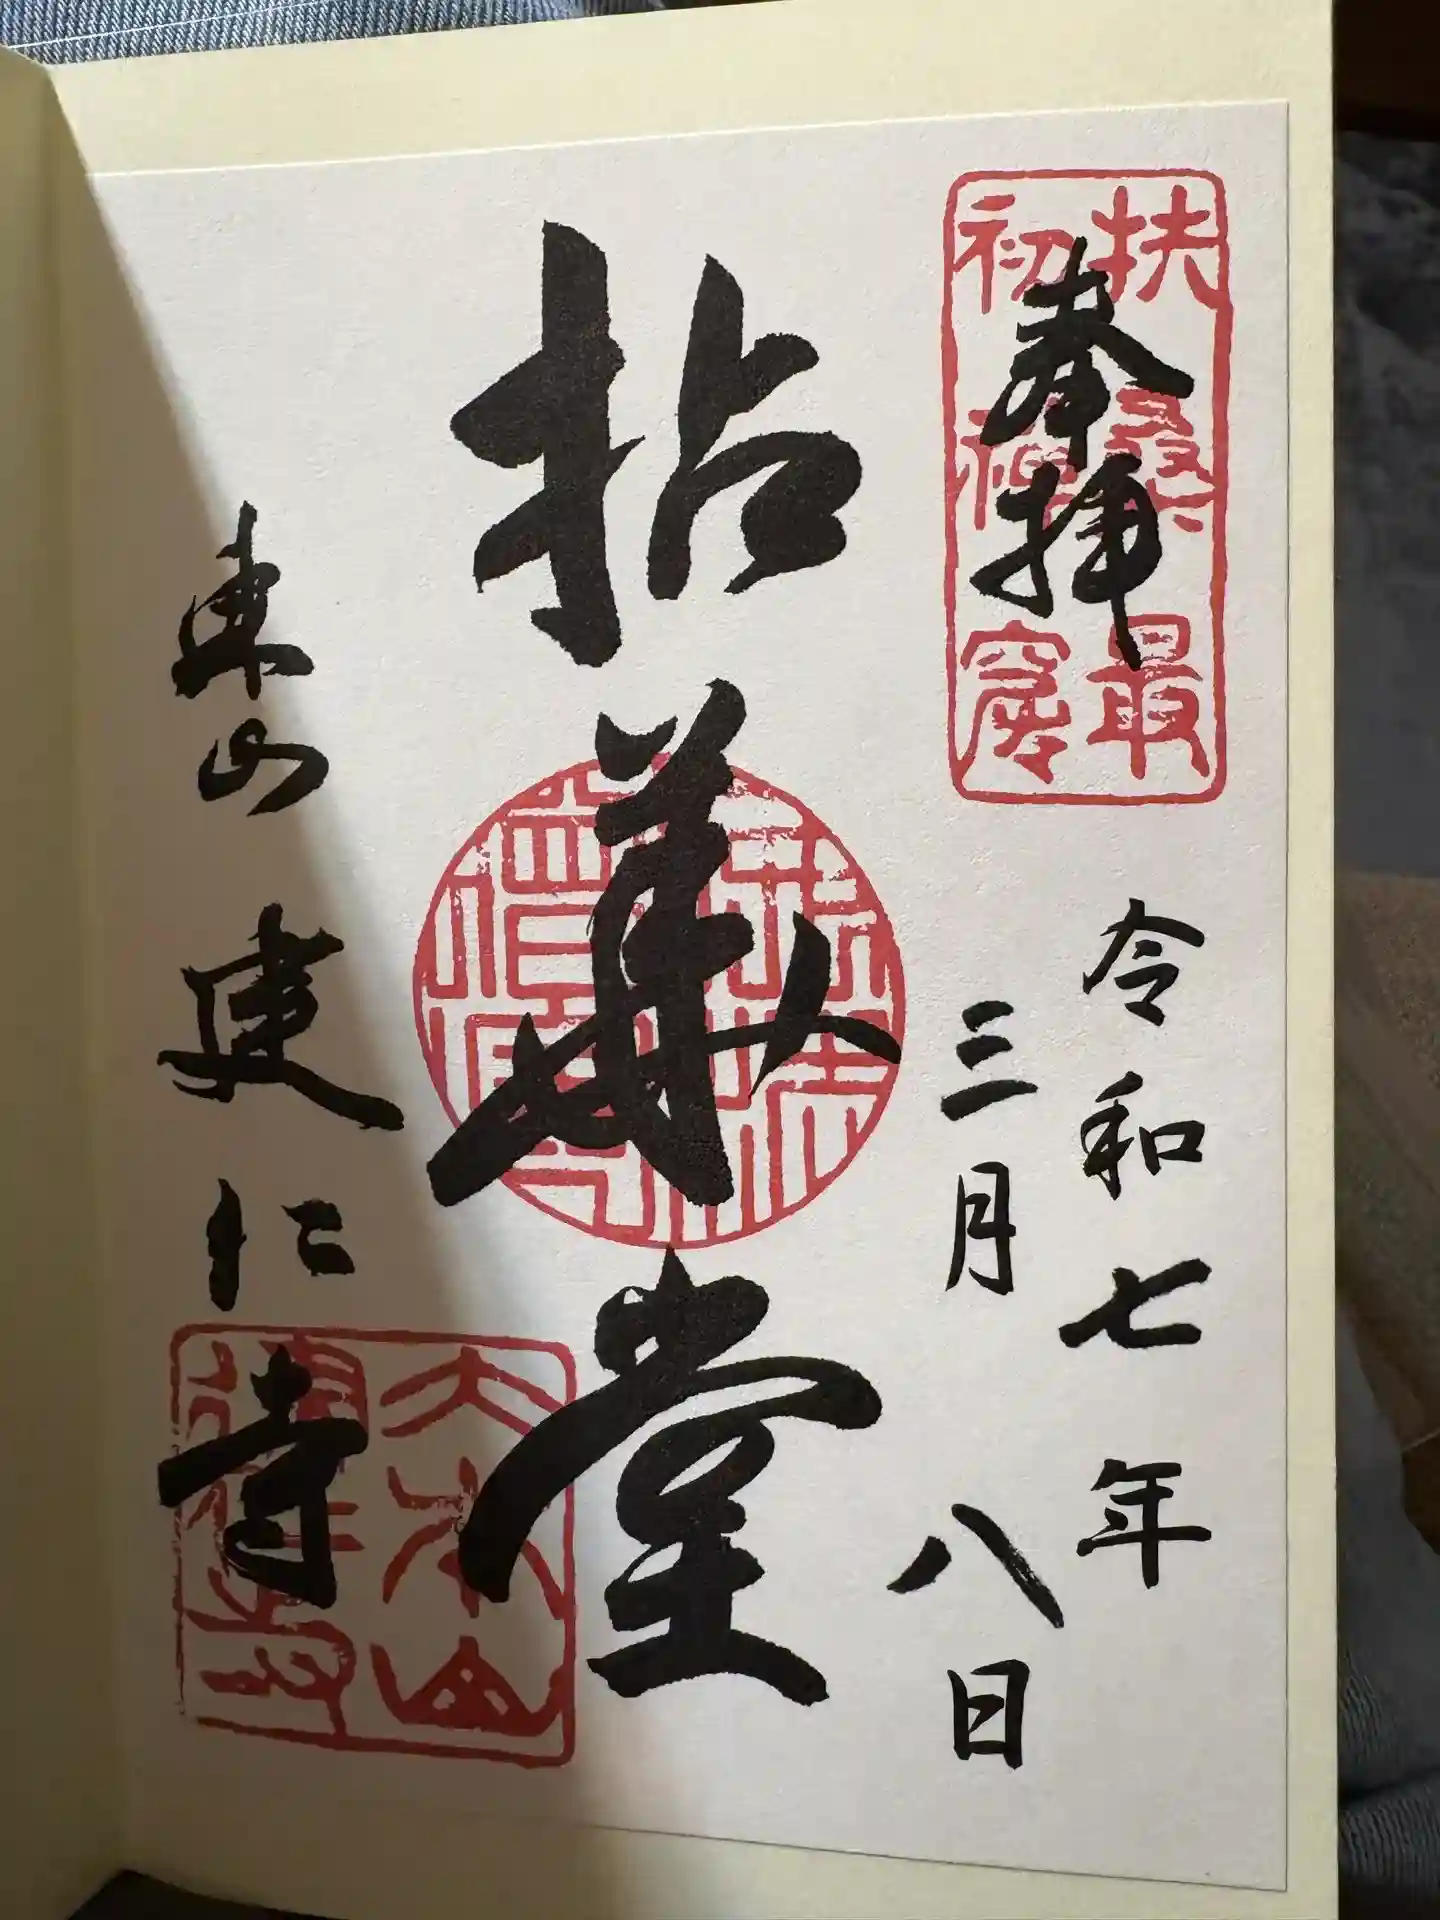 扶桑最
初禅窟
奉拝
令和七年
三月八日
拈華堂
東山建仁寺
大本山
建仁寺